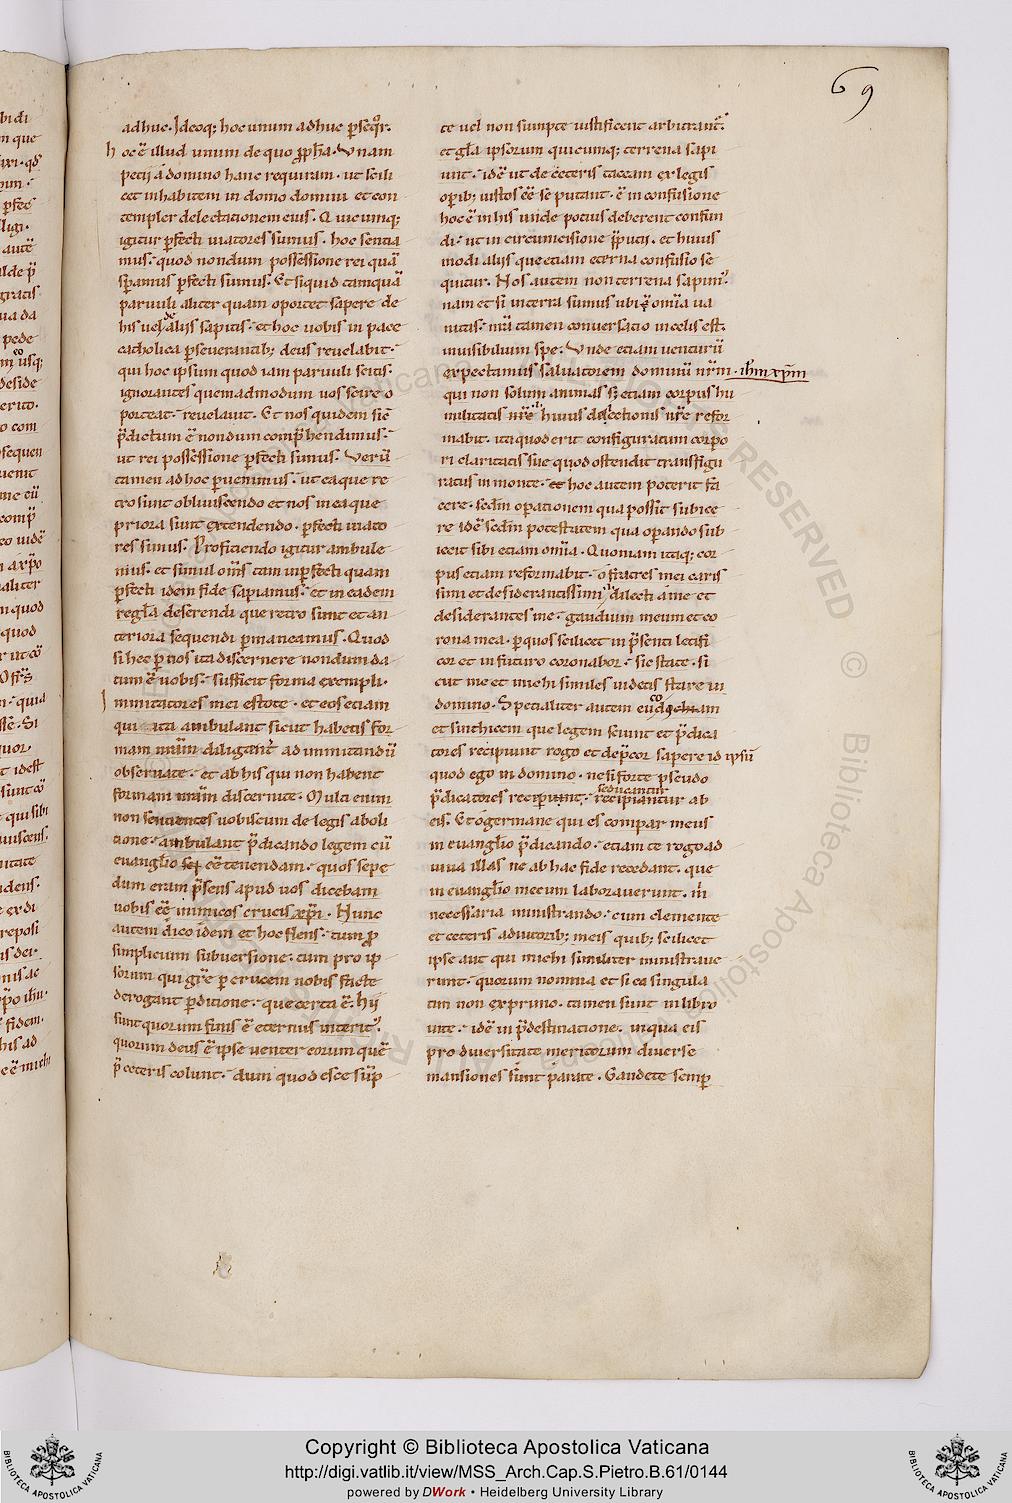 69
adhuc. Ideoq; hoc unum adhuc p̱seq̄r.
hoc ē illud unum de quo ꝓph̄a. Vnam
petii a domino hanc requiram. ut scili
cet inhabitem in domo domini et con
templer delectationem eius. Quicumq;
igitur p̱fecti uiatores sumus. hoc sentia
mus. quod nondum possessione rei quā
sp̱amus p̱fecti sumus. Et siquid tamquā
paruuli aliter quam oportet sapere de
his uel de aliis sapitis. et hoc uobis in pace
catholica p̱seuerantib; deus reuelabit.
qui hoc ipsum quod iam paruuli scitis.
ignorantes quemadmodum uos scire o
porteat. reuelauit. Et nos quidem sic
p̄dictum ē nondum comp̄hendimus.
ut rei possessione p̱fecti simus. Verū
tamen ad hoc p̱uenimus. ut ea que re
tro sunt obliuiscendo et nos in ea que
priora sunt extendendo. p̱fecti uiato
res simus. Proficiendo igitur ambule
mus. et simul om̄s tam inp̱fecti quam
p̱fecti idem fide sapiamus. et in eadem
regl̄a deserendi que retro sunt et an
teriora sequendi p̱maneamus. Quod
si hec p̱ nos ita discernere nondum da
tum ē uobis. sufficit forma exempli.
Imitatores mei estote. et eos etiam
qui ita ambulant sicut habetis for
mam nr̄am diligent̄ ad imitandū
obseruate. et ab his qui non habent
formam nr̄am discernite. Multi enim
non sentientes uobiscum de legis aboli
tione. ambulant p̄dicando legem cū
euangl̄io eē tenendam. quos sepe
dum eram p̄sens apud uos dicebam
uobis eē inimicos crucis xp̄i. Nunc
autem dico idem et hoc flens. tum ꝓ
simplicium subuersione. tum pro ip
sorum qui gr̄e p̱ crucem nobis facte
derogant p̱ditione. que certa ē. hij
sunt quorum finis ē eternus interit᷒.
quorum deus ē ipse uenter eorum quē
p̄ ceteris colunt. dum quod esce sūp
te uel non sumpte iustificent arbitrant᷑.
et gl̄a ipsorum quicumq; terrena sapi
unt. idē ut de ceteris taceam ex legis
op̱ib; iustos eē se putant. ē in confusione
hoc ē in his unde potius deberent confun
di. ut in circumcisione p̄putii. et huius
modi aliis que etiam eterna confusio se
quitur. Nos autem non terrena sapim᷒.
nam et si in terra sumus ubi ꝗ om̄ia ua
nitas. nr̄a tamen conuersatio in celis est.
inuisibilium spe. Vnde etiam uenturū
expectamus saluatorem dominū nr̄m. ih̄m xp̄m
qui non solum animas sꝫ etiam corpus hu
militatis nr̄e huius deiectionis nr̄e refor
mabit. ita quod erit configuratum corpo
ri claritatis sue quod ostendit transfigu
ratus in monte. et hoc autem poterit fa
cere. sedm̄ operationem qua possit subice
re idē sedm̄ potestatem qua operando sub
iecit sibi etiam om̄ia. Quoniam itaq; cor
pus etiam reformabit. o fratres mei caris
simi et desiderantissimi dilecti a me et
desiderantes me. gaudium meum et co
rona mea. p̱ quos scilicet in p̄senti letifi
cor et in futuro coronabor. sic state. si
cut me et michi similes uidetis stare in
domino. Specialiter autem euodiam
et sinthicem que legem sciunt et p̄dica
tores recipiunt rogo et dep̄cor sapere id ipsū
quod ego in domino. ne si forte pseudo
p̄dicatores recipiunt. seducantur recipiantur ab
eis. Et o germane qui es compar meus
in euangl̄io p̄dicando. etiam te rogo ad
iuua illas ne ab hac fide recedant. que
in euangl̄io mecum laborauerunt. m̄
necessaria ministrando. cum clemente
et ceteris adiutorib; meis quib; scilicet
ipse aut qui michi similiter ministraue
runt. quorum nomina et si ea singula
tim non exprimo. tamen sunt in libro
uite. idē in p̄destinatione. in qua eis
pro diuersitate meritorum diuerse
mansiones sunt parate. Gaudete semp̱
Copyright © Biblioteca Apostolica Vaticana
http://digi.vatlib.it/view/MSS_Arch.Cap.S.Pietro.B.61/0144
powered by DWork • Heidelberg University Library